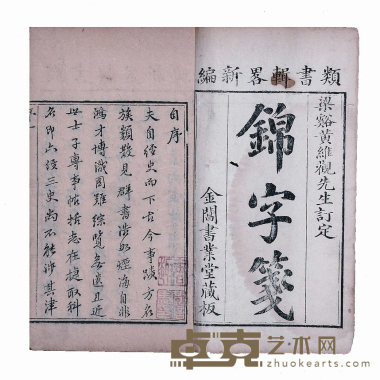 類書輯畧新編
梁谿黃維觀先生訂定
錦字箋
金閶書業堂藏板
自序
夫自經史而下古今事跡方名
族類散見群書浩如煙海自非
鴻才博識固難綜覽無遺且近
世士子專事帖括志在捷取科
名即六經三史尚不能涉其津
卓克艺术网
www.zhuokearts.com